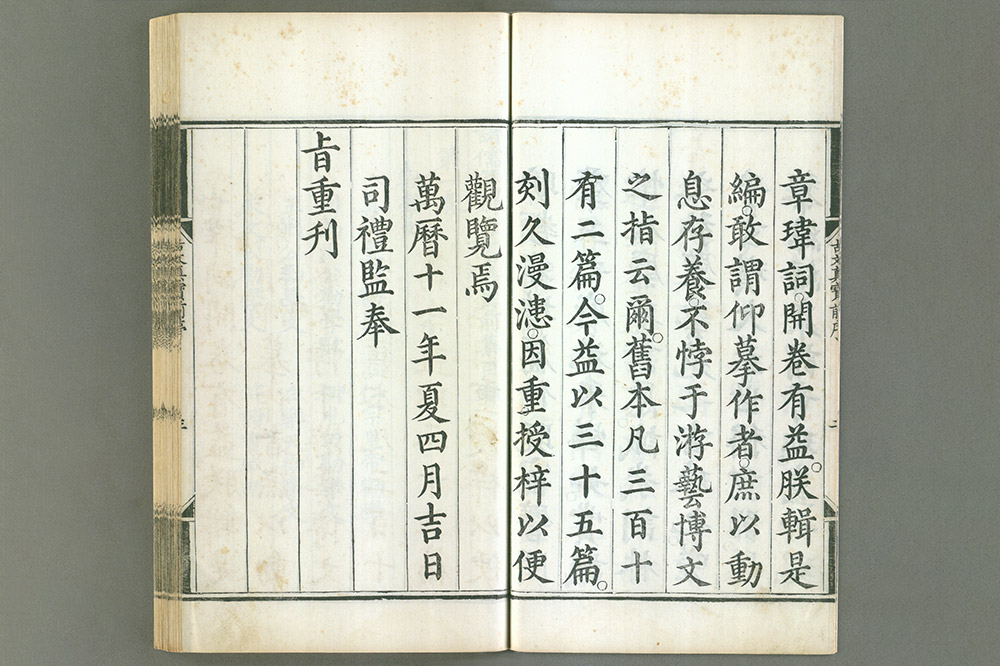 章瑋詞。開卷有益。朕輯是
編。敢謂仰摹作者。庶以動
息存養。不悖于游藝博文
之指云爾。舊本凡三百十
有二篇。今益以三十五篇。
刻久漫漶。因重授梓以便
觀覽焉
萬曆十一年夏四月吉日
司禮監奉
旨重刊